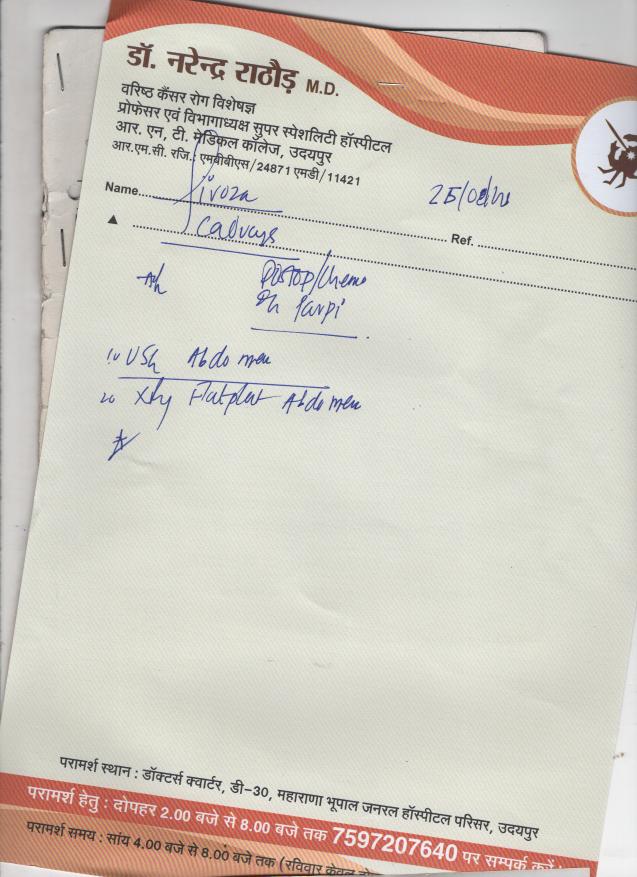 डॉ. नरेन्द्र राठौड़ M.D.
वरिष्ठ कैंसर रोग विशेषज्ञ
प्रोफेसर एवं विभागाध्यक्ष सुपर स्पेशलिटी हॉस्पीटल
आर. एन, टी. मेडिकल कॉलेज, उदयपुर
आर.एम.सी. रजि.: एमबीबीएस/24871 एमडी/11421
Name
25/
Ref.
POSTOP/Chemo
10 USG Abdomen
20 Flatplat Abdomen
परामर्श स्थान : डॉक्टर्स क्वार्टर, डी-30, महाराणा भूपाल जनरल हॉस्पीटल परिसर, उदयपुर
परामर्श हेतु : दोपहर 2.00 बजे से 8.00 बजे तक 7597207640 पर सम्पर्क करें
परामर्श समय : सांय 4.00 बजे से 8.00 बजे तक (रविवार केवल